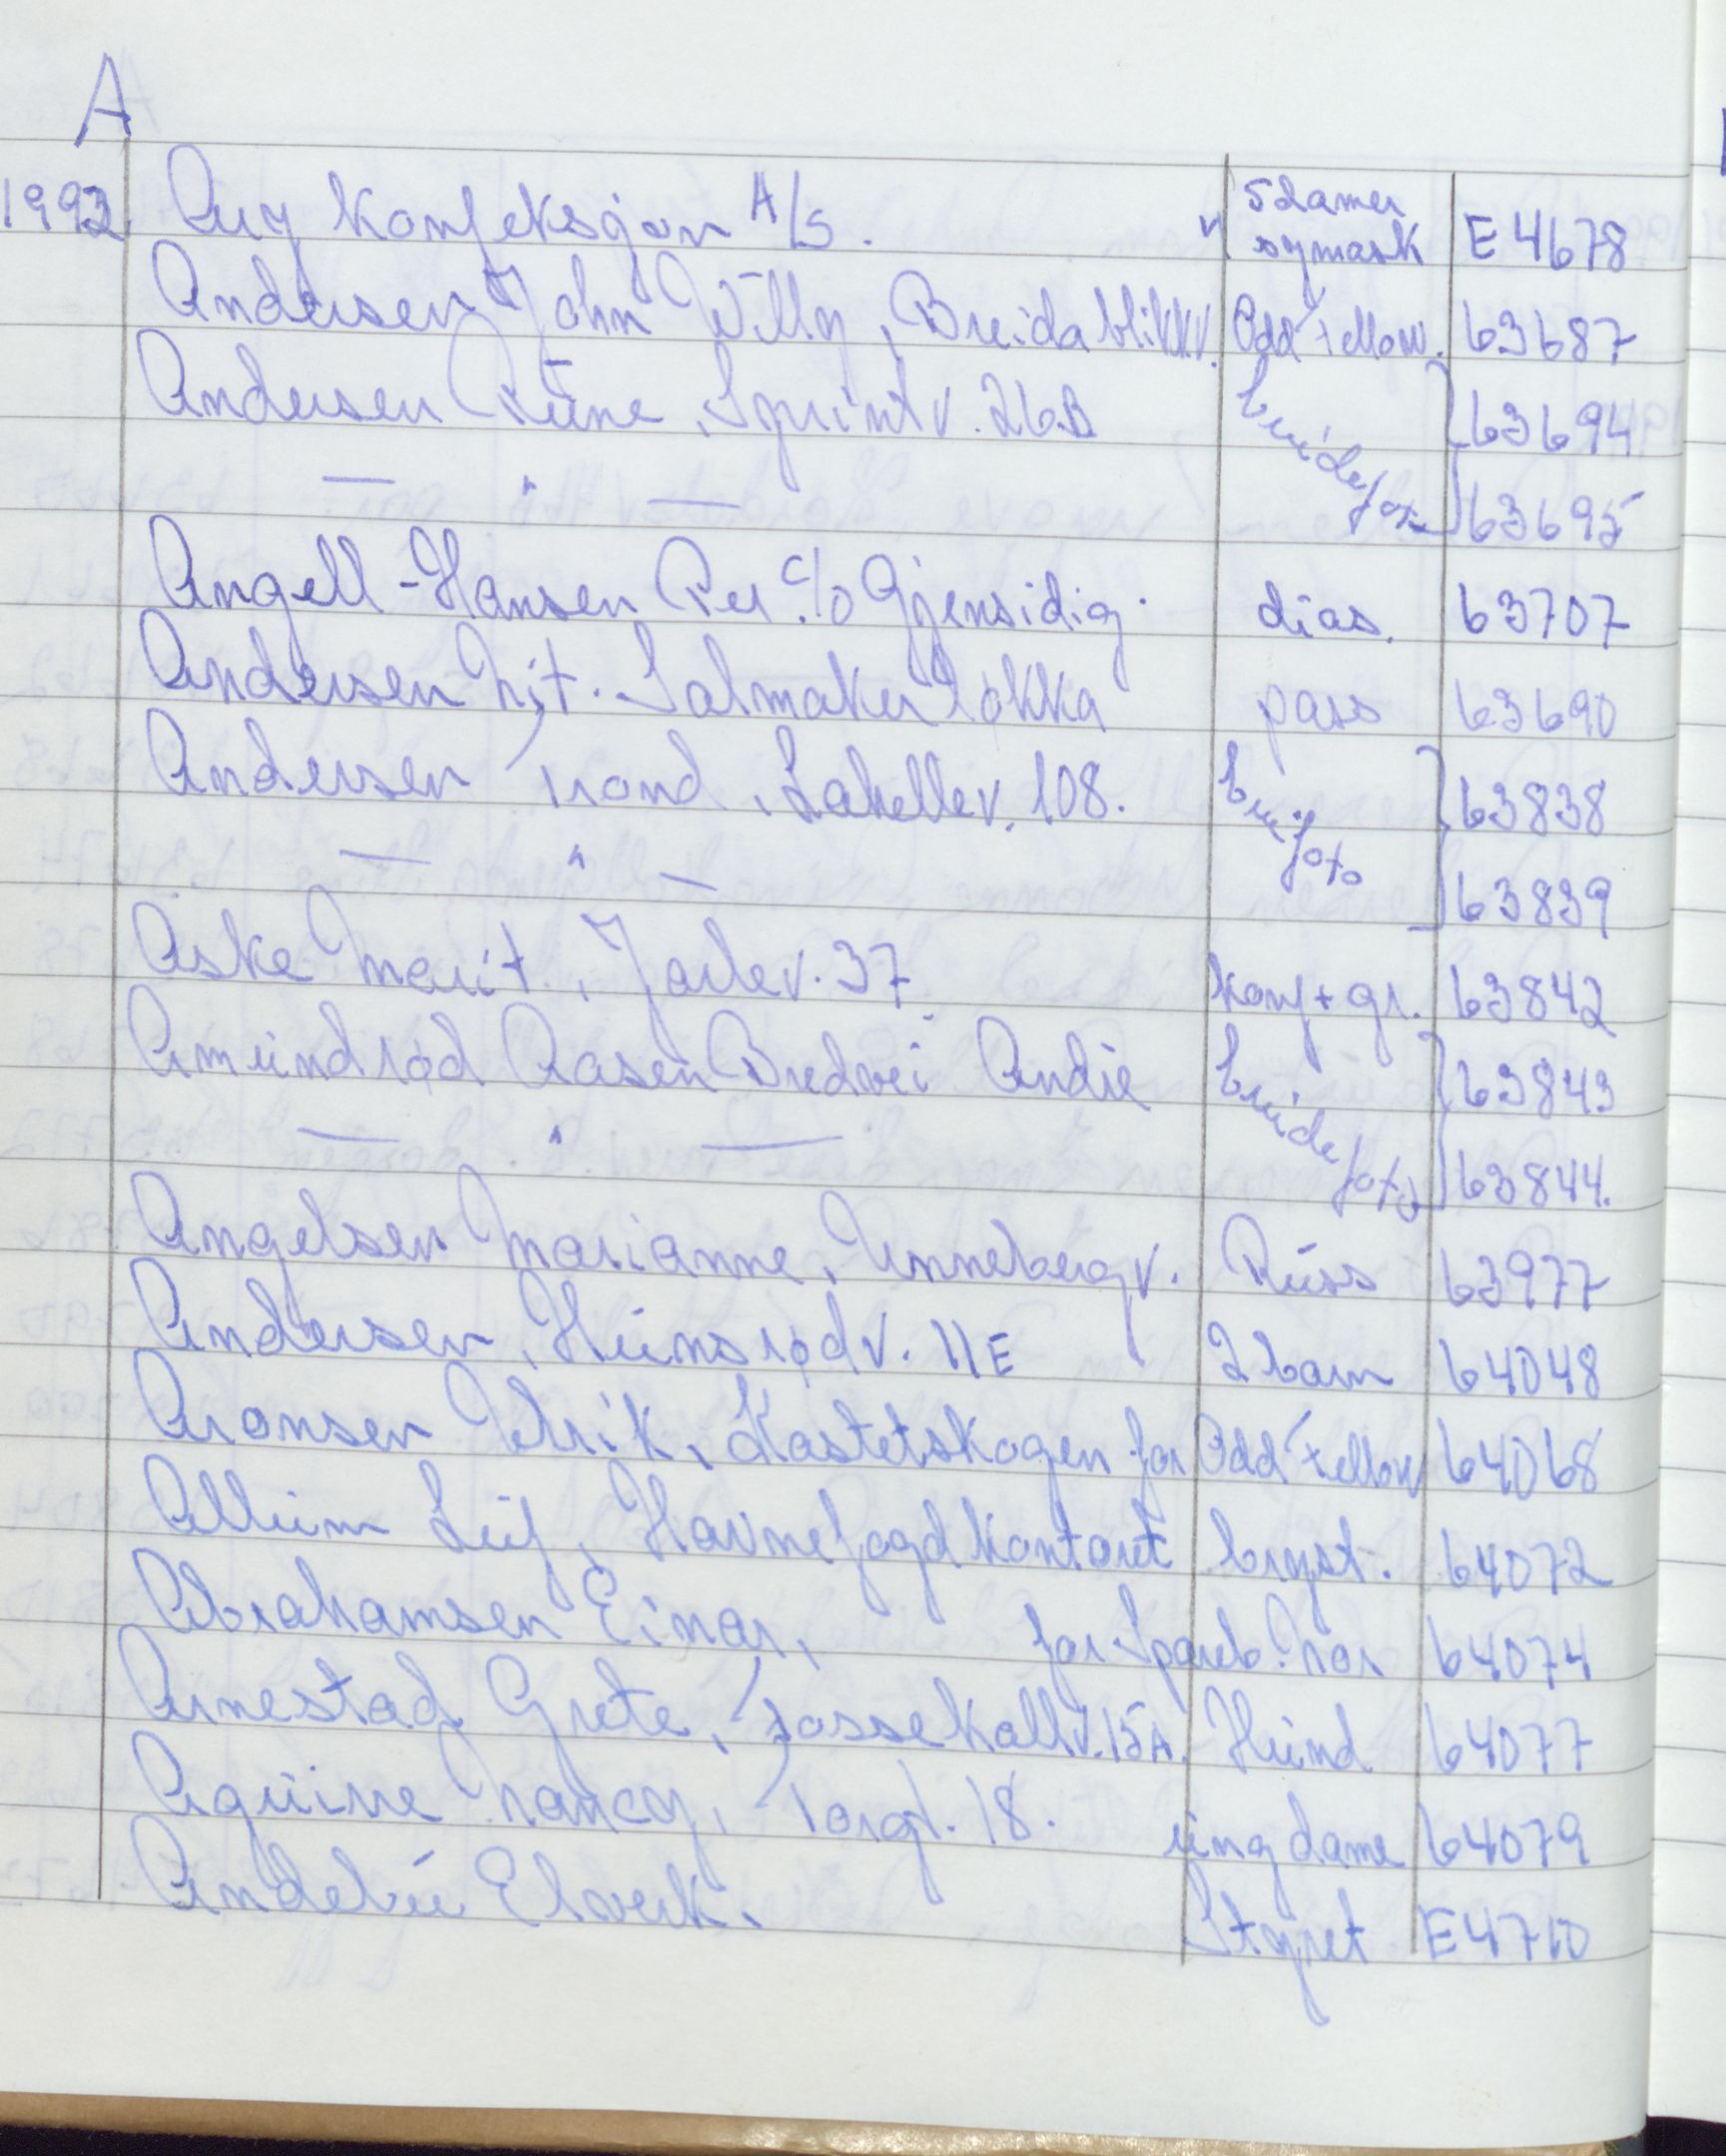 A
1992 Auy Konfeksjon A/S. v/ 5 damer symask E 4678
Andersen John Willy, Breidablikkv. Odd Fellow. 63687
Andersen Rune, Sprintv. 26B brudefoto 63694
— " — 63695
Angell-Hansen Per c/o Gjensidig. dias. 63707
Andersen Salmakerløkka pass 63690
Andersen Trond, Lahellev. 108. brudefoto 63838
— " — 63839
Aske Marit, Jarlev. 37. konf + gr. 63842
Amundrød Aasen Bredvei Andre brudefoto 63843
— " — 63844.
Angelsen Marianne, Unnebergv. Russ 63977
Andersen, Hunsrødv. 11E 2 barn 64048
Aronsen Ulrik, Kastetskogen for Odd Fellow 64068
Allum Leif, Havnefogdkontoret bryst. 64072
Abrahamsen Einar, for Spareb. Nor 64074
Arnestad Grete, Fossekallv. 15A. Hund 64077
Aguirre Nancy, Torgt. 18. ung dame 64079
Andebu Elverk. Styret E 4710